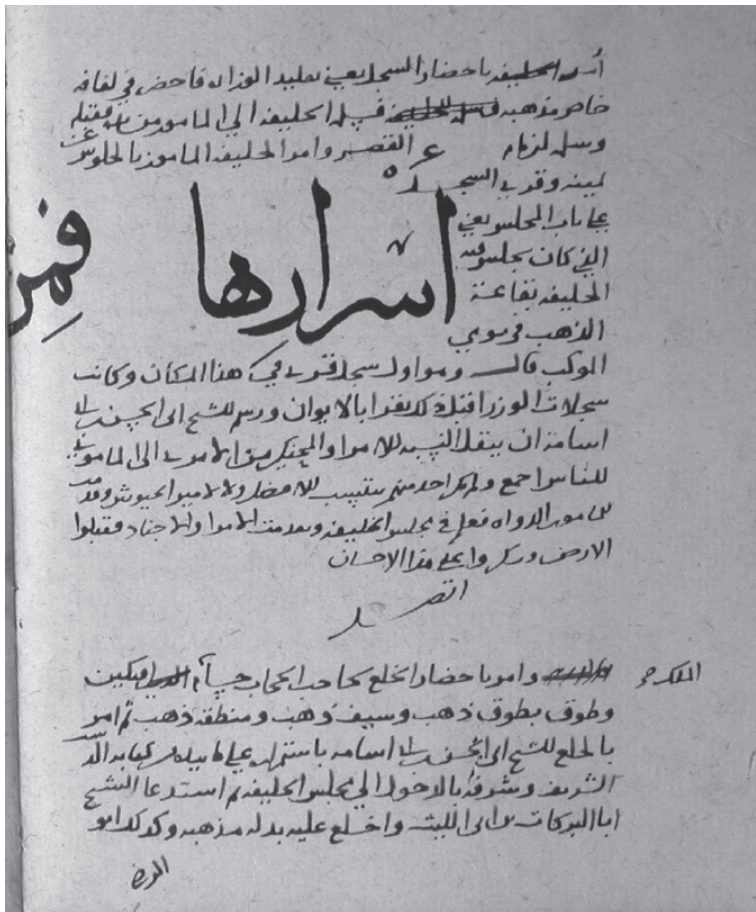 أمر الخليفه باحضار السجل يعني بتقليد الوزاره فاحضر في لفافه
خاص مذهبه فسلمه الخليفه الي المامون من يده فقبله
وسلمه لزمام القصر وامر الخليفه المامون بالجلوس عن
يمينه وقري السجل
علي باب المجلس يعني
الذي كان يجلس فيه
الخليفه بقاعة
الذهب في يومي
اسرارها فمن
الموكب قال وهو اول سجل قري في هذا المكان وكانت
سجلات الوزرا قبل ذلك تقرا بالايوان ورسم للشيخ ابي الحسن بن ابي
اسامة ان ينقل النسبه للامرا والمحنكين من الامري الى الماموني
للناس اجمع ولم يكن احد منهم ينتسب للافضل ولا لامير الجيوش وقدمت
للمامون الدواه فعلم في مجلس الخليفه وتقدمت الامرا والاجناد فقبلوا
الارض وشكروا على هذا الاحسان
وامر باحضار الخلع لحاجب الحجاب حسام افتكين
الملك
وطوق بطوق ذهب وسيف ذهب ومنطقه ذهب ثم امر
بالخلع للشيخ ابي الحسن بن ابي اسامه باستمراره علي ما بيده من كتابه الدست
الشريف وشرفه بالدخول الي مجلس الخليفه ثم استدعا الشيخ
ابا البركات بن ابي الليث واخلع عليه بدله مذهبه وكذلك ابو
الرضى